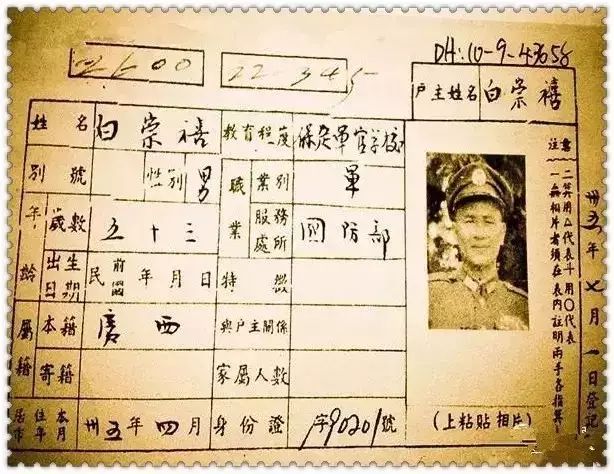 DH:10-9-43658
2600
22-345
户主姓名 白崇禧
姓名 白崇禧 教育程度 保定軍官學校
別號 性別 男 職業 業別 軍
年齡 歲數 五十三 服務處所 國防部
出生日期 民前國 年 月 日 特徵
屬籍 本籍 廣西 與戶主關係
寄籍 家屬人數
居住本市年月 卅五年四月 身份證 字90201號
(上粘貼相片)
注意
二箕用△代表斗用〇代表
一無相片者須在表內註明兩手各指箕斗
卅五年七月一日登記